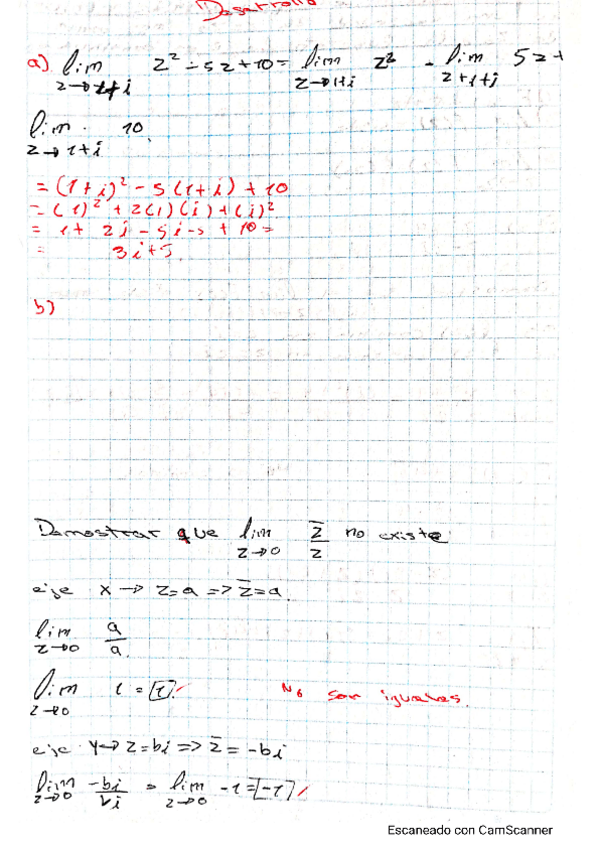 Desarrollo
a) lim z² - 5z + 10 = lim z² - lim 5z +
z→1+i z→1+i z→1+i
lim 10
z→1+i
= (1+i)² - 5(1+i) + 10
= (1)² + 2(1)(i) + (i)²
= 1 + 2i - 5i - 5 + 10 =
= 3i + 5
b)
Demostrar que lim z̄/z no existe
z→0
eje x → z=a => z̄=a.
lim a/a
z→0
lim 1 = 1
z→0
No son iguales.
eje y → z=bi => z̄ = -bi
lim -bi/bi = lim -1 = -1
z→0 z→0
Escaneado con CamScanner